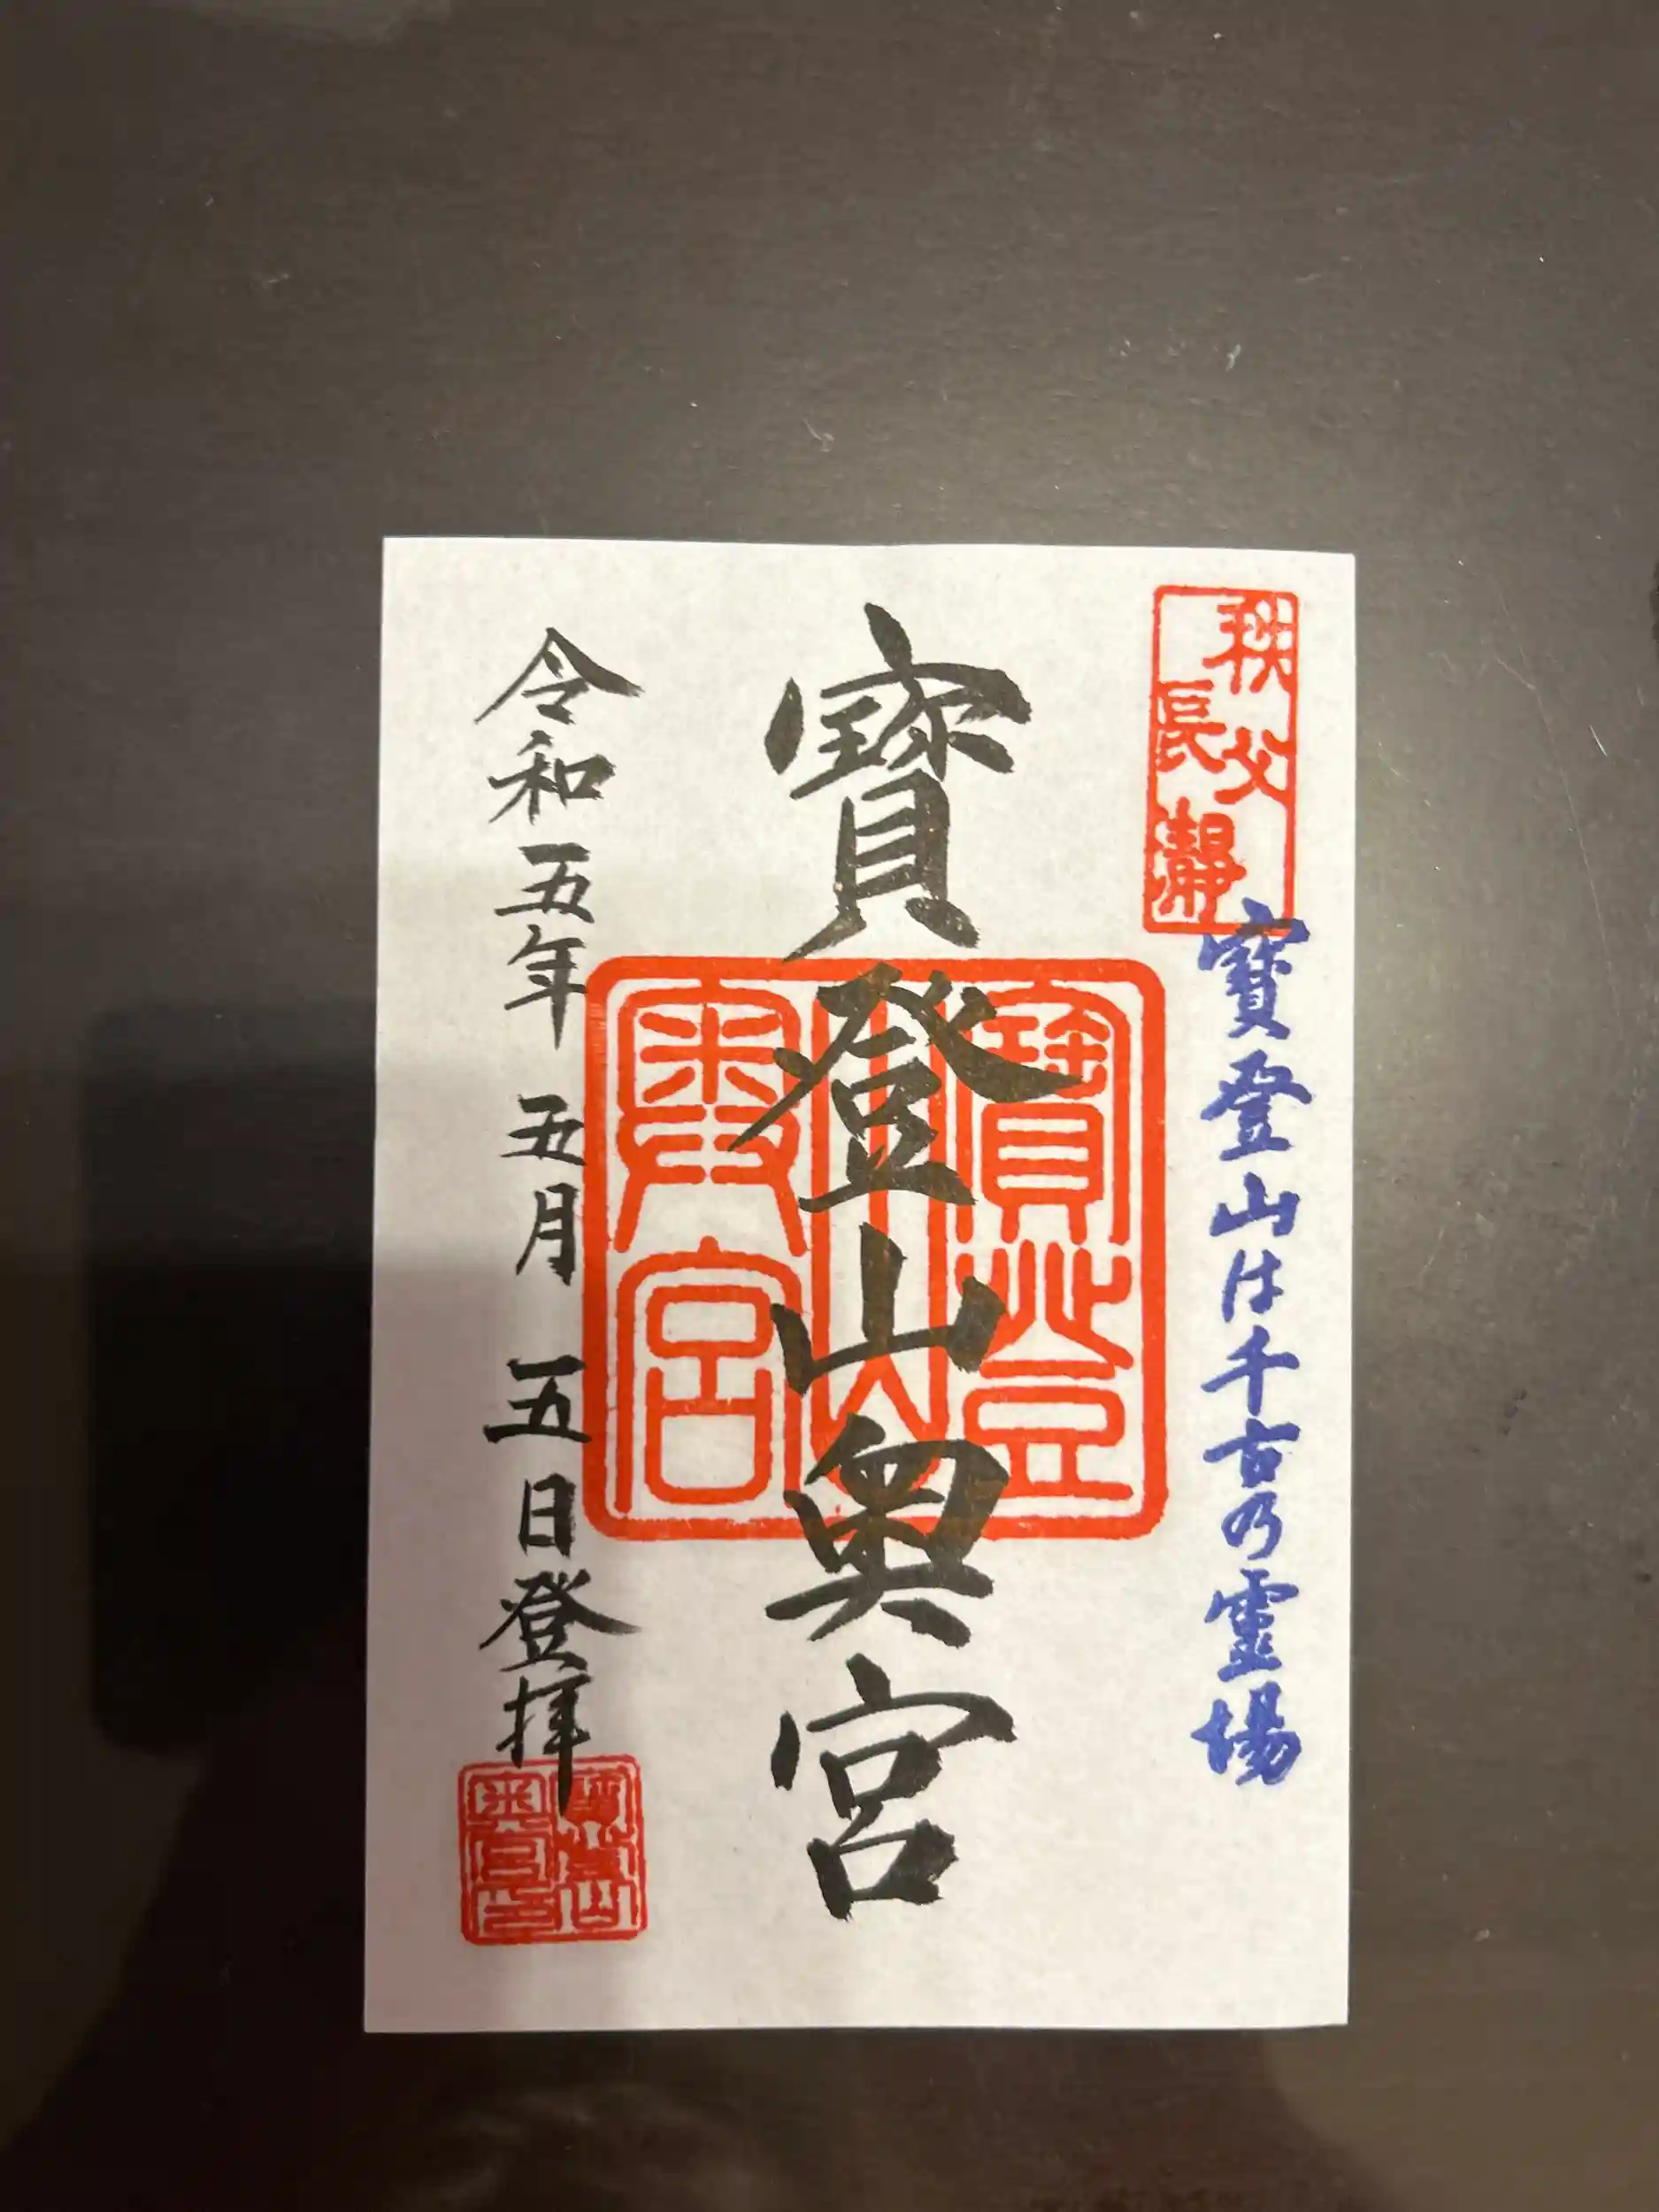 秩父
長瀞
寶登山は千古乃霊場
寶登山奥宮
寶登
山
奥宮
令和五年 五月 五日登拝
寶登山
奥宮印